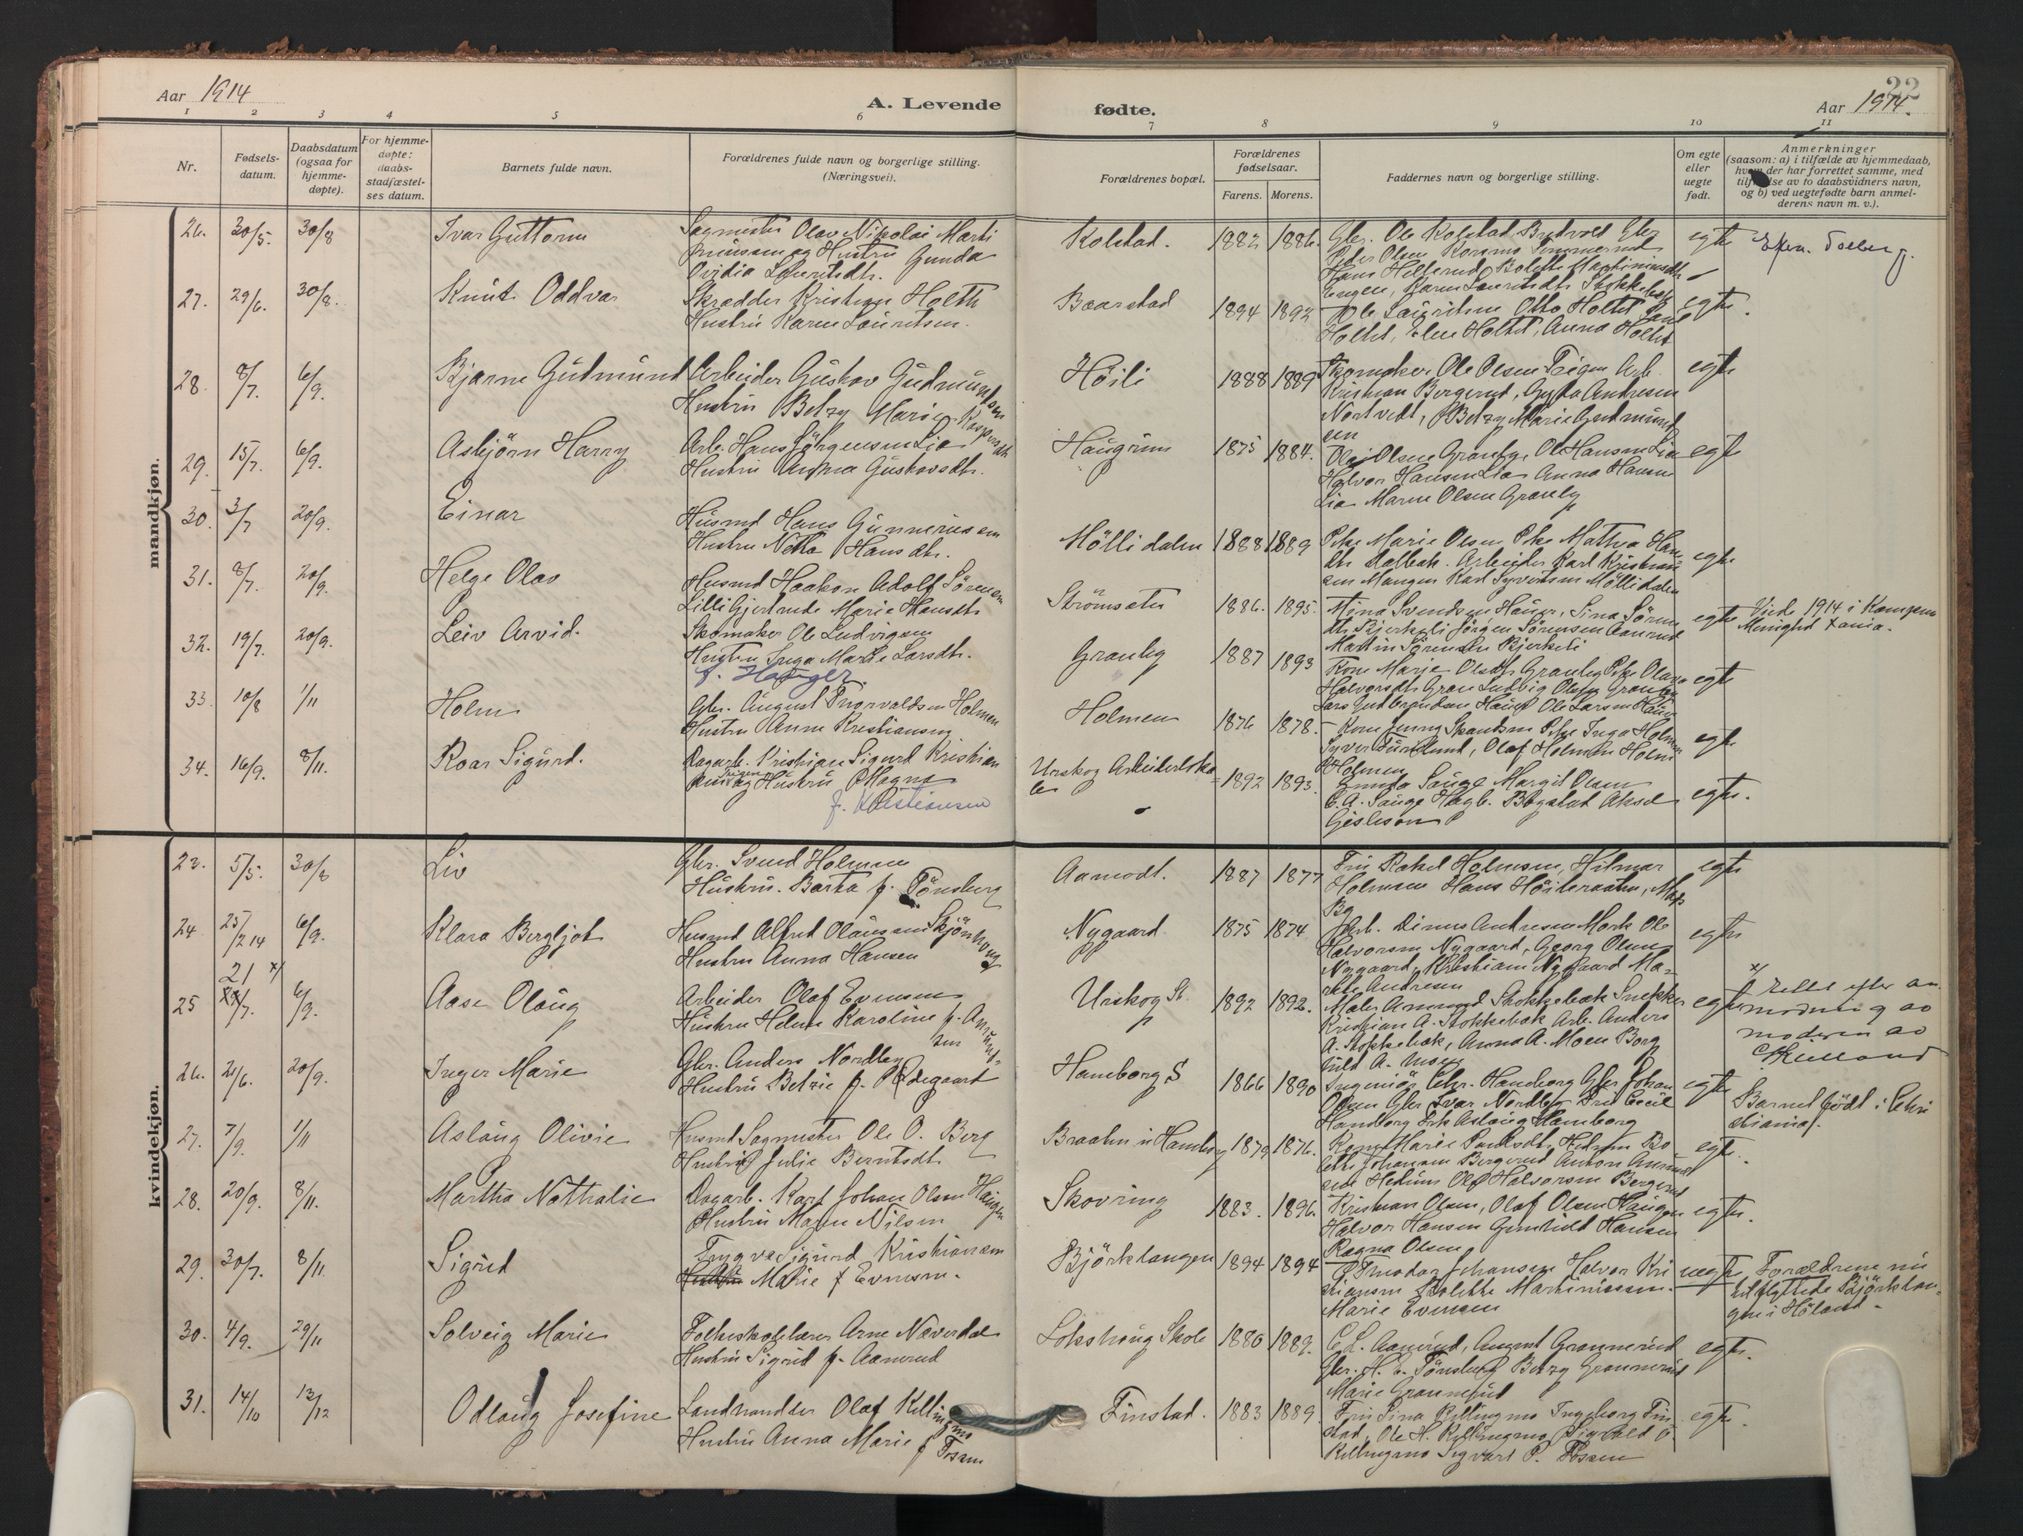 Aar 1914
A. Levende
fødte.
22
Aar 1914.
1 2 3 4 5 6 7 8 9 10 11
Nr.
Fødsels-
datum.
Daabsdatum
(ogsaa for
hjemme-
døpte).
For hjemme-
døpte:
daabs-
stadfæstel-
ses datum.
Barnets fulde navn.
Forældrenes fulde navn og borgerlige stilling.
(Næringsvei).
Forældrenes bopæl.
Forældrenes
fødselsaar.
Farens. Morens.
Faddernes navn og borgerlige stilling.
Om egte
eller
uegte
født.
Anmerkninger
(saasom: a) i tilfælde av hjemmedaab,
hvem der har forrettet samme, med
tilføielse av to daabsvidners navn,
og b) ved uegtefødte barn anmel-
derens navn m. v.).
mandkjøn.
26. 30/5. 30/8 Ivar Guttorm
Sagmester Olav Nikolai Marti
niussen og Hustru Gunda
Ovidia Lauritsdtr.
Kolstad. 1882 1886.
Gbr. Ole Kolstad,
Peder Olsen
Hans Hellerud, Bolette Martiniusdtr
Engen, Karen Lauritsdtr Stokkebæk
egte
27. 29/6. 30/8. Knut Oddvar
Skrædder Kristian Holth
Hustru Karen Lauritsen.
Baarstad 1894 1892
Ole Lauritsen Otto Holtet
Holtet, Elen Holtet, Anna Holtet
egte.
28. 8/7. 6/9. Bjarne Gudmund
Arbeider Gustav Gudmundsen
Hustru Betzy Marie Kaspersdtr
Høili 1888 1889
Skomaker Ole Olsen Teigen Arb.
Kristian Bergerud, Gyda Andresen
Nortvedt, Betzy Marie Gudmund
sen
egte
29. 15/7. 6/9. Asbjörn Harry
Arb. Hans Jörgensen Lia
Hustru Anna Gustavsdtr.
Haugrim 1875 1884.
Olaf Olsen Granby, Ole Hansen Lia
Halvor Hansen Lia Anna Hansen
Lia Maren Olsen Granby
egte
30. 3/7 20/9. Einar
Husmd Hans Gunneriussen
Hustru Netta Hansdtr.
Möllidalen 1888 1889
Pike Marie Olsen Pike Mathea Han
dtr Dalbak. Arbeider Karl Kristian
sen Mangen Karl Syversen Möllidalen
egte
31. 8/7. 20/9. Helge Olav
Husmd Haakon Adolf Sörensen
Lilli Gjertrude Marie Hansdtr
Strömsæter 1886. 1895.
Mina Svendsen Hauer, Sina Sören
dtr. Bjerkeli Jörgen Sörensen
Martin Sörensen Bjerkeli
egte
Viede 1914 i Kampens
Menighed Xania.
32. 19/7. 20/9. Leiv Arvid.
Skomaker Ole Ludvigsen
Hustru Inga Marie Larsdtr.
f. Hauger
Granby 1887 1893
Kone Marie Olsdtr Granby Pike Olava
Halvorsdtr Gran Ludvig Olsen Granby
Lars Gudbrandsen Haug Ole Larsen Haug
egte
33. 10/8 1/11 Holm
Gbr. August Thorvaldsen Holmen
Hustru Anne Kristiansen
Holmen 1876 1878.
Kone Jenny Pike Inga Holmen
Syver Sundlund, Olaf Holmen Holm
Holmen
egte
34. 16/9. 8/11. Roar Sigurd.
Dagarb. Kristian Sigurd Kristian
sen og Hustru Magna
f. Kristiansen
Urskog Arbeiderlok
1892 1893.
Gunda Sauge Margit Olsen
C. A. Sauge Hagb. Bogstad Aksel
egte.
kvindekjøn.
23. 5/5. 30/8 Liv
Gbr. Svend Holmen
Hustru. Barta f. Tönsberg
Aamodt. 1887 1877
Fru Rakel Holmsen, Hilmar
Holmsen Hans
egte
24. 25/2 14 6/9. Klara Bergljot
Husmd Alfred Olausen Skjönhaug
Hustru Anna Hansen
Nygaard 1875 1874
Arb. Dinus Andresen Mork Ole
Halvorsen Nygaard, Georg Olsen
Nygaard, Kristiane Nygaard Ma-
rete Andresen
egte
25 21 x/ 7. 6/9. Aase Olaug
Arbeider Olaf Evensen
Hustru Helene Karoline f. Amund-
sen
Urskog St. 1892 1892.
Maler Amund Stokkebæk Snekker
Kristian A. Stokkebæk Arb. Anders
A. Stokkebæk, Anna A. Moen Borg
hild A. Moen
egte
x/ Rettet efter an
modning av
moderen av
Kielland
26. 21/6. 20/9. Inger Marie
Gbr. Anders Nordby
Hustru Betzie f. Ødegaard
Hamborg S 1866 1890
Ingeniör Chr. Hamborg Gbr Johan
Olsen Gbr Ivar Nordby Fru Cecil
Hamborg Frk Aslaug Hamborg
egte
Barnet födt i Chri
stiania.
27. 7/9. 1/11 Aslaug Olivie
Husmd Sagmester Ole O. Berg
Hustru Julie Berntsdtr
Braaten u Hamborg 1879 1876.
Kone Marie Paulsdtr, Hedum Bo
lette Johansen Bergerud Anton Amund
sen Hedum Ole Halvorsen Bergerud
egte.
28. 20/9. 8/11. Martha Nathalie
Dagarb. Karl Johan Olsen Haugen
Hustru Maren Nilsen
Skovring 1883. 1896.
Kristian Olsen, Olaf Olsen Haugen
Halvor Hansen Gunhild Hansen
Ragna Olsen
egte.
29. 30/7. 8/11. Sigrid
Trygve Sigurd Kristiansen
Marie f Evensen.
Björkelangen 1894 1894
Thodor Johansen Halvor Kri
stiansen Bolette Martinussen.
Marie Evensen
uegte
Forældrene nu
tilflyttede Björkelan-
gen i Höland.
30. 4/9. 29/11 Solveig Marie
Folkeskolelærer Arne Næverdal
Hustru Sigrid f. Aanerud
Lokshaug Skole 1880 1889.
C. L. Aanerud, August Grannerud
Gbr. H. E. Tönsberg Betzy Grannerud
Marie Grannerud
egte.
31. 14/10 13/12 Odlaug Josefine
Landhandler Olaf Killingmo
Hustru Anna Marie f Fossen
Finstad. 1883 1889.
Fru Sina Killingmo Ingeborg Fin
stad, Ole H. Killingmo Sigvald O
Killingmo Sigvart P. Fossen
egte.